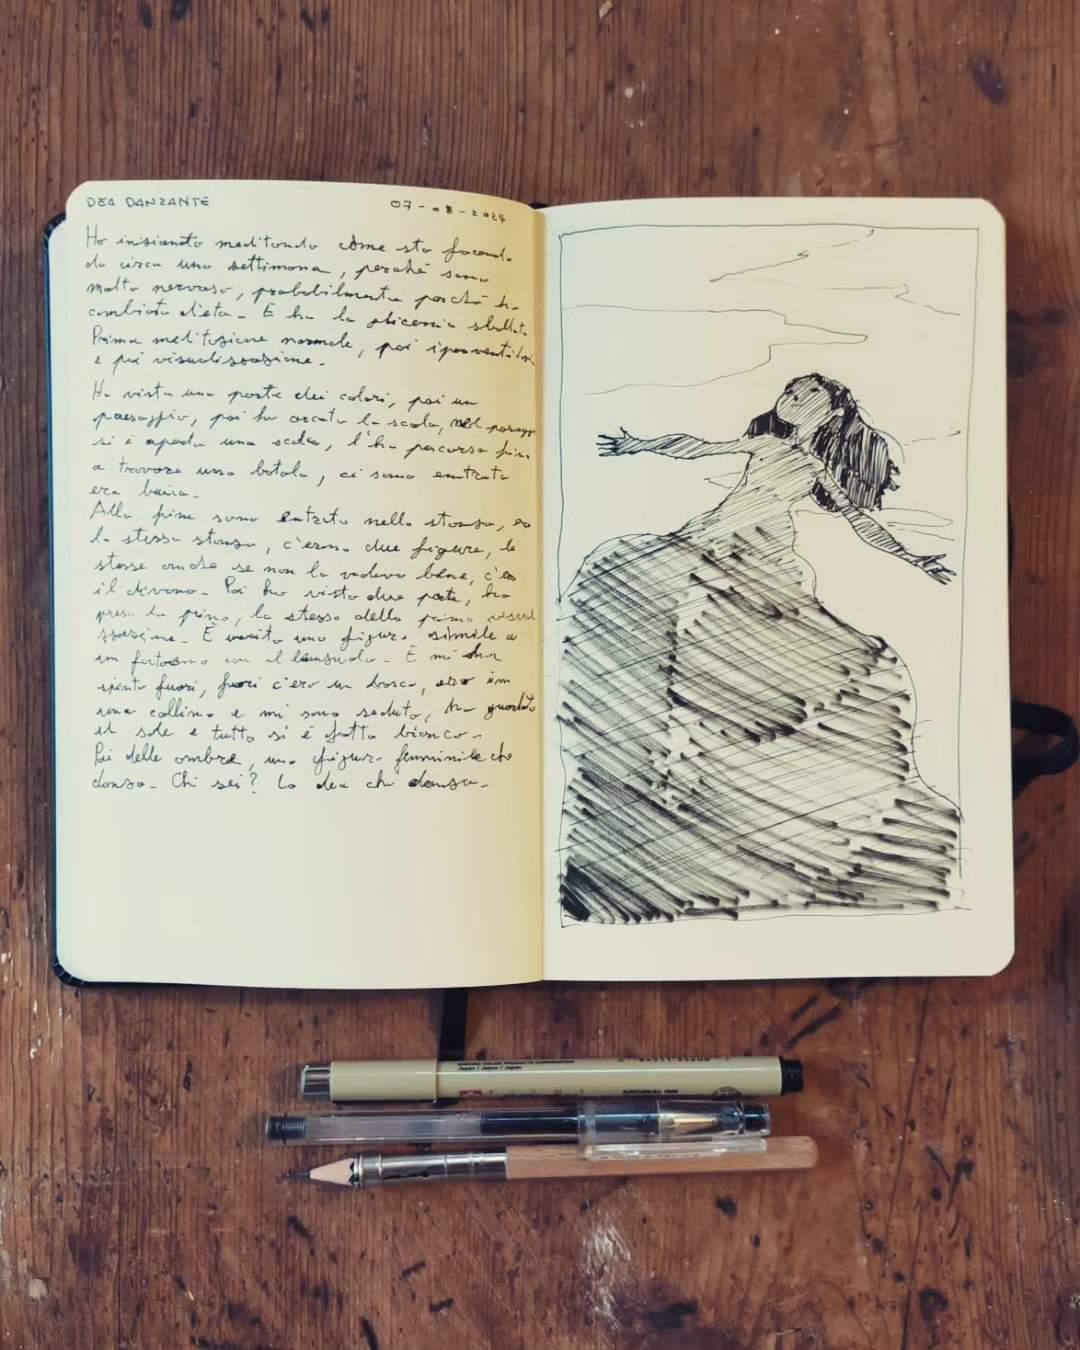 DEA DANZANTE
07-08-2024
Ho iniziato meditando come sto facendo
da circa una settimana, perché sono
molto nervoso, probabilmente perché ho
cambiato dieta. E ho la glicemia sballata
Prima meditazione normale, poi iperventilazi
e poi visualizzazione.
Ho visto una porta dei colori, poi un
paesaggio, poi ho cercato la scala, nel paesagg
si è aperta una scala, l'ho percorsa fino
a trovare una botola, ci sono entrato
era buia.
Alla fine sono entrato nella stanza, era
la stessa stanza, c'erano due figure, le
stesse anche se non le vedevo bene, c'era
il divano. Poi ho visto due porte, ho
preso la prima, la stessa della prima visual
zzazione. È uscita una figura simile a
un fantasma con il lenzuolo. E mi ha
spinto fuori, fuori c'era un bosco, ero in
una collina e mi sono seduto, ho guardato
il sole e tutto si è fatto bianco.
Poi delle ombre, una figura femminile che
danza. Chi sei? La dea che danza.
SAKURA COLOR PRODUCTS CORPORATION
Japan
ARCHIVAL INK